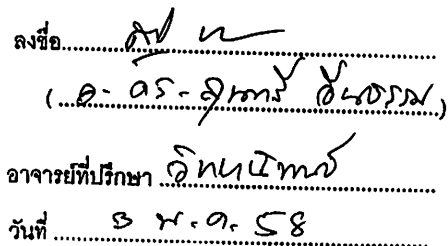 ลงชื่อ
(อ. ดร. สุนทรี
อาจารย์ที่ปรึกษา วิทยานิพนธ์
วันที่ 3 พ.ค. 58